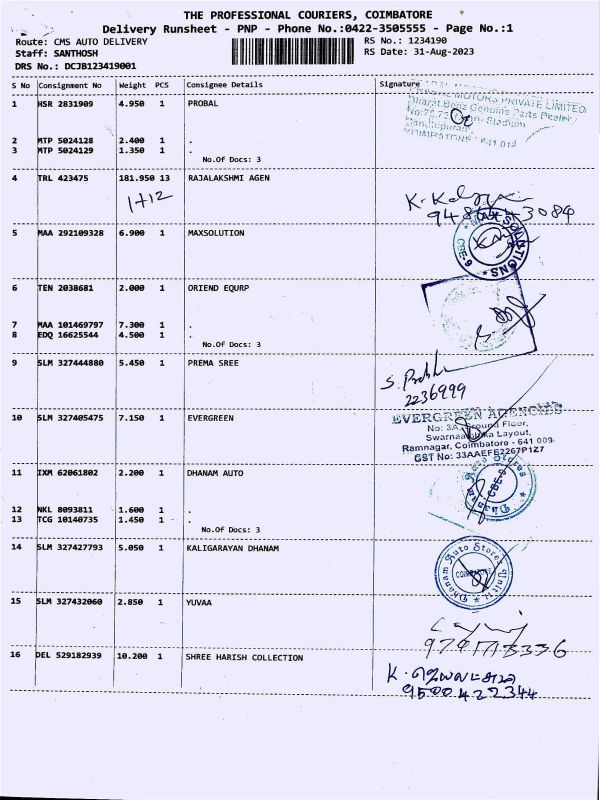 THE PROFESSIONAL COURIERS, COIMBATORE
Delivery Runsheet - PNP - Phone No.:0422-3505555 - Page No.:1
Route: CMS AUTO DELIVERY RS No.: 1234190
Staff: SANTHOSH RS Date: 31-Aug-2023
DRS No.: DCJB123419001
S No Consignment No Weight PCS Consignee Details Signature
1 HSR 2831909 4.950 1 PROBAL
MOTORS PRIVATE LIMITED
Bharat Benz Genuine Parts Dealer
Stadium
2 MTP 5024128 2.400 1 .
3 MTP 5024129 1.350 1 .
No.Of Docs: 3
4 TRL 423475 181.950 13 RAJALAKSHMI AGEN
1+12
K.
5 MAA 292109328 6.900 1 MAXSOLUTION
SOLUTIONS
CBE-9
6 TEN 2038681 2.000 1 ORIEND EQURP
7 MAA 101469797 7.300 1 .
8 EDQ 16625544 4.500 1 .
No.Of Docs: 3
9 SLM 327444880 5.450 1 PREMA SREE
S.
2236999
10 SLM 327405475 7.150 1 EVERGREEN
EVERGREEN AGENCIES
No: 3A, Ground Floor,
Layout,
Ramnagar, Coimbatore - 641 009.
GST No: 33AAEFE2267P1Z7
11 IXM 62061802 2.200 1 DHANAM AUTO
Dhanam Auto Stores
CBE-9
12 NKL 8093811 1.600 1 .
13 TCG 10140735 1.450 1 .
No.Of Docs: 3
14 SLM 327427793 5.050 1 KALIGARAYAN DHANAM
Dhanam Auto Stores Unit
15 SLM 327432060 2.850 1 YUVAA
16 DEL 529182939 10.200 1 SHREE HARISH COLLECTION
K.
9500422344